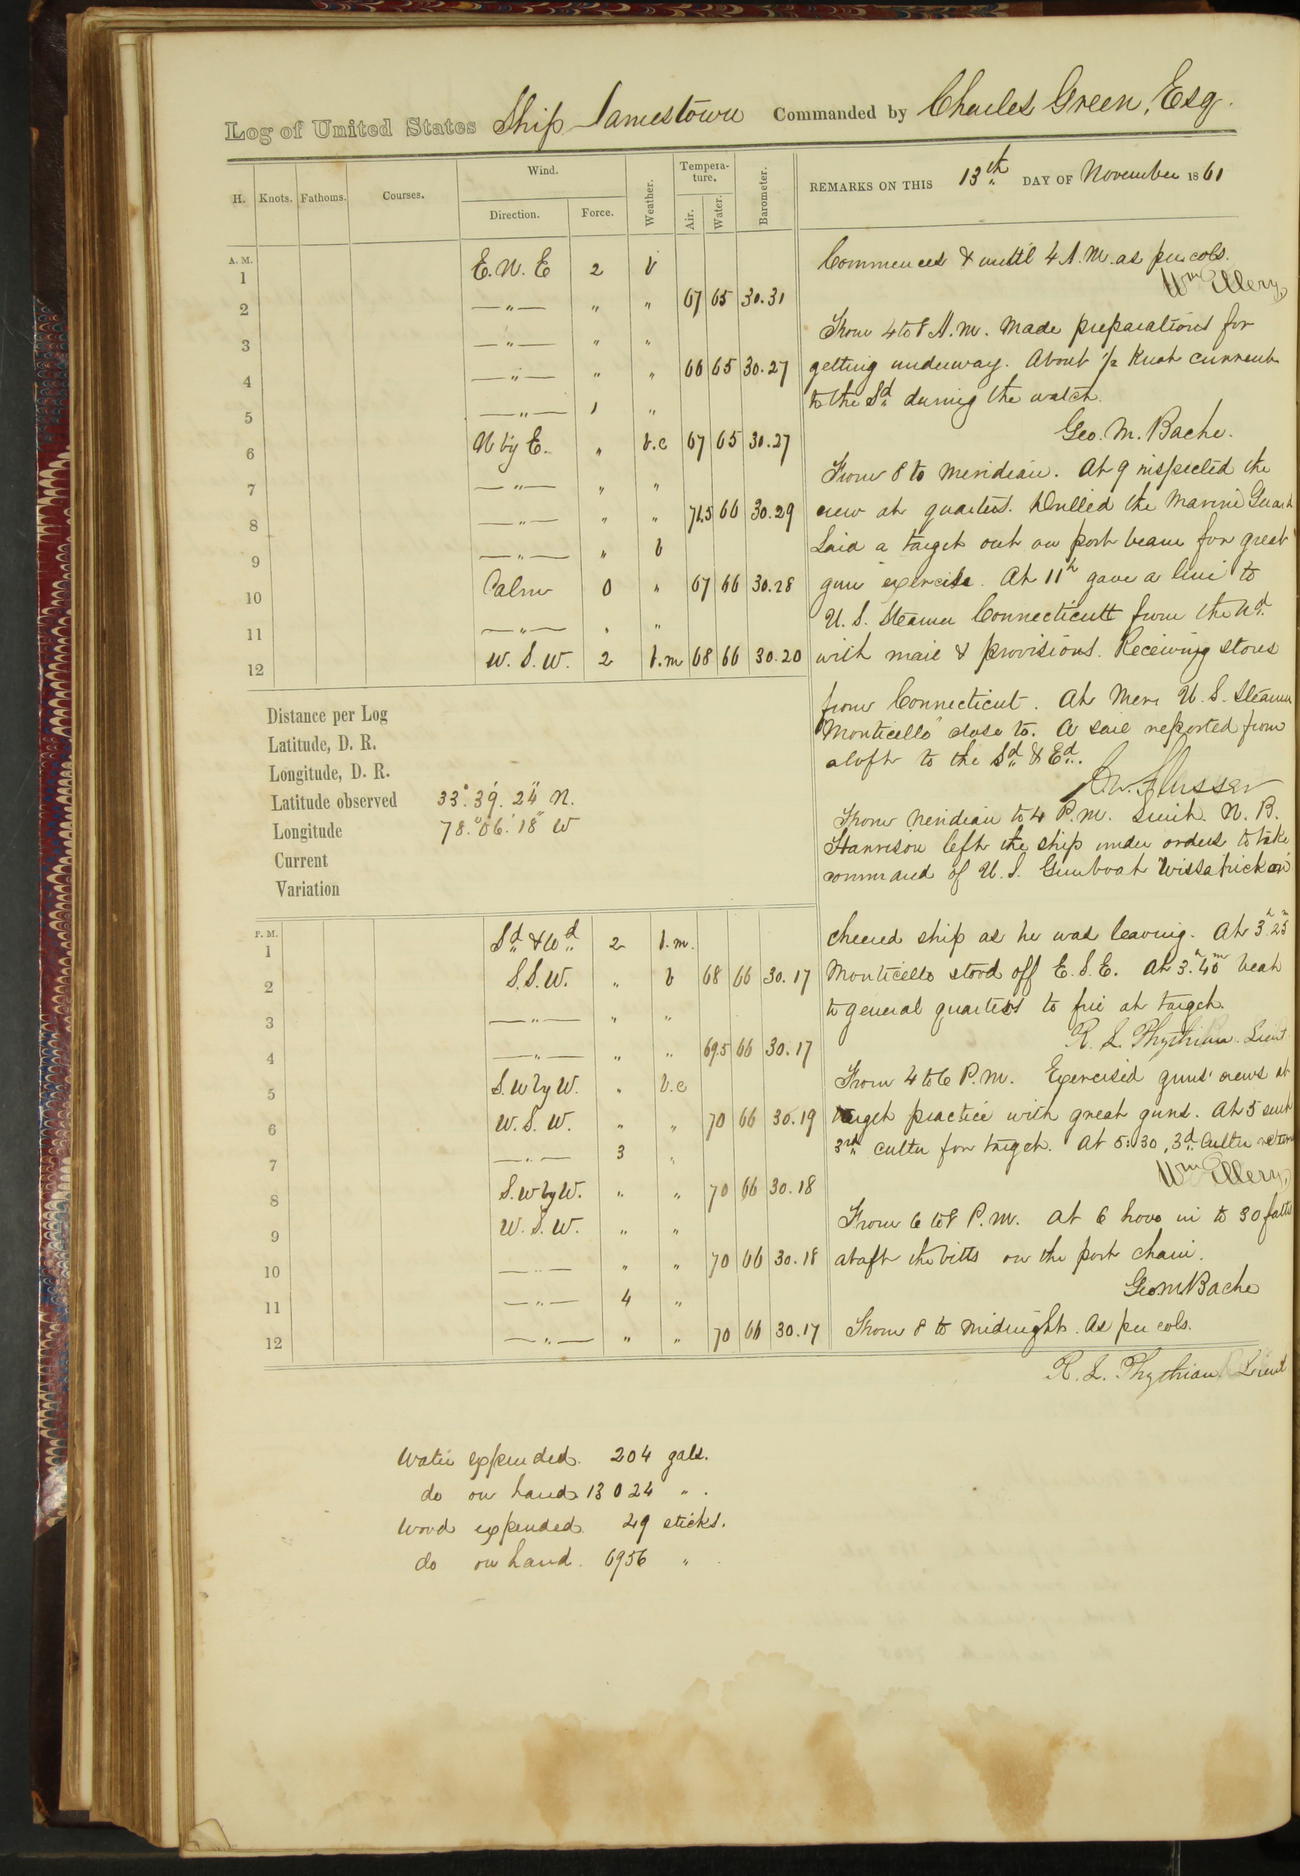 Log of United States Ship Jamestown Commanded by Charles Green, Esq.
H. Knots. Fathoms. Courses. Wind. Direction. Force. Weather. Tempera-ture. Air. Water. Barometer. REMARKS ON THIS 13th DAY OF November 1861
A. M.
1 E. N. E 2 b
2 —"— " " 67 65 30.31
3 —"— " "
4 —"— " " 66 65 30.27
5 —"— 1 "
6 N by E. " b.c 67 65 30.27
7 —"— " "
8 —"— " " 71.5 66 30.29
9 —"— " b
10 Calm 0 " 67 66 30.28
11 —"— " "
12 W. S. W. 2 b.m 68 66 30.20
Commences & until 4 A.M. as per cols.
Wm Ellery
From 4 to 8 A.M. Made preparations for
getting underway. About 1/2 Knot current
to the Sd during the watch.
Geo. M. Bache.
From 8 to meridian. At 9 inspected the
crew at quarters. Drilled the Marine Guard
Laid a target out on port beam for great
gun exercise. At 11h gave a line to
U. S. Steamer Connecticutt from the Nd.
with mail & provisions. Receiving stores
from Connecticut. At Mer. U. S. Steamer
"Monticello" close to. A sail reported from
aloft to the Sd & Ed.
Distance per Log
Latitude, D. R.
Longitude, D. R.
Latitude observed 33° 39' 24" N.
Longitude 78° 06' 18" W
Current
Variation
From Meridian to 4 P.M. Lieut. N. B.
Harrison left the ship under orders to take
command of U. S. Gunboat Wissahickon
cheered ship as he was leaving. At 3h 25m
Monticello stood off E. S. E. At 3h 40m beat
to general quarters to fire at target.
R. L. Phythian. Lieut
From 4 to 6 P.M. Exercised guns' crews at
target practice with great guns. At 5 sent
3rd cutter for target. At 5:30, 3d Cutter return
Wm Ellery
From 6 to 8 P.M. At 6 hove in to 30 faths
abaft the bitts on the port chain.
Geo M Bache
From 8 to midnight. As per cols.
R. L. Phythian Lieut
P. M.
1 Sd & Wd 2 b.m.
2 S. S. W. " b 68 66 30.17
3 —"— " "
4 —"— " " 69.5 66 30.17
5 S. W by W. " b.c
6 W. S. W. " " 70 66 30.19
7 —"— 3 "
8 S. W by W. " " 70 66 30.18
9 W. S. W. " "
10 —"— " " 70 66 30.18
11 —"— 4 "
12 —"— " " 70 66 30.17
Water expended. 204 gals.
do on hand 13024 " .
Wood expended 29 sticks.
do on hand. 6956 "